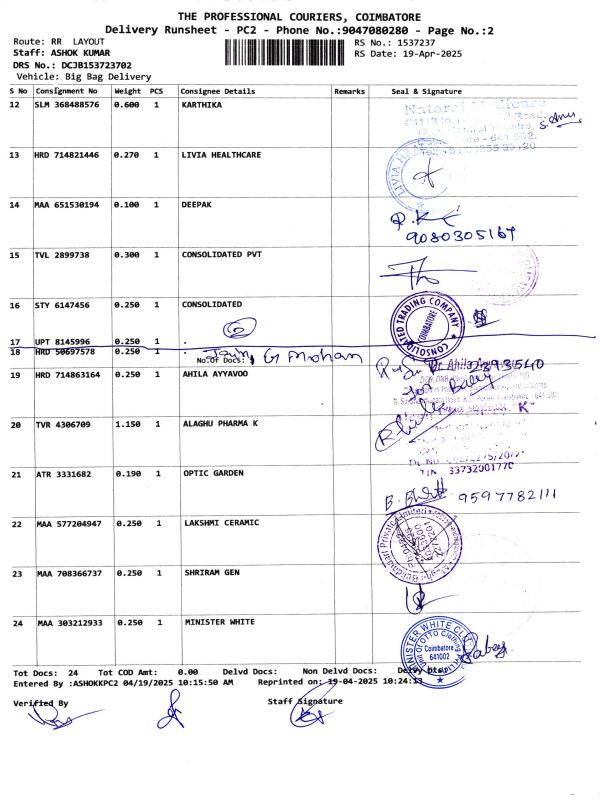 THE PROFESSIONAL COURIERS, COIMBATORE
Delivery Runsheet - PC2 - Phone No.:9047080280 - Page No.:2
Route: RR LAYOUT
RS No.: 1537237
Staff: ASHOK KUMAR
RS Date: 19-Apr-2025
DRS No.: DCJB153723702
Vehicle: Big Bag Delivery
S No Consignment No Weight PCS Consignee Details Remarks Seal & Signature
12 SLM 368488576 0.600 1 KARTHIKA
13 HRD 714821446 0.270 1 LIVIA HEALTHCARE
14 MAA 651530194 0.100 1 DEEPAK
9080305167
15 TVL 2899738 0.300 1 CONSOLIDATED PVT
16 STY 6147456 0.250 1 CONSOLIDATED
CONSOLIDATED TRADING COMPANY
COIMBATORE
6
17 UPT 8145996 0.250 1 .
18 HRD 50697578 0.250 1 .
No.Of Docs:
G Mohan
19 HRD 714863164 0.250 1 AHILA AYYAVOO
20 TVR 4306709 1.150 1 ALAGHU PHARMA K
33732001770
21 ATR 3331682 0.190 1 OPTIC GARDEN
9597782111
22 MAA 577204947 0.250 1 LAKSHMI CERAMIC
23 MAA 708366737 0.250 1 SHRIRAM GEN
24 MAA 303212933 0.250 1 MINISTER WHITE
Coimbatore
641002
Tot Docs: 24 Tot COD Amt: 0.00 Delvd Docs: Non Delvd Docs:
Entered By :ASHOKKPC2 04/19/2025 10:15:50 AM Reprinted on: 19-04-2025 10:24:13
Verified By
Staff Signature